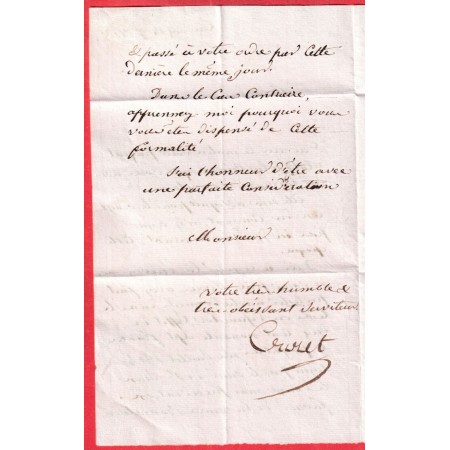 & passé à votre ordre par cette
dernière le même jour.
Dans le cas contraire,
apprennez moi pourquoi vous
vous êtes dispensé de cette
formalité
J'ai l'honneur d'être avec
une parfaite considération
Monsieur
votre très humble &
très obéissant serviteur
Cruret